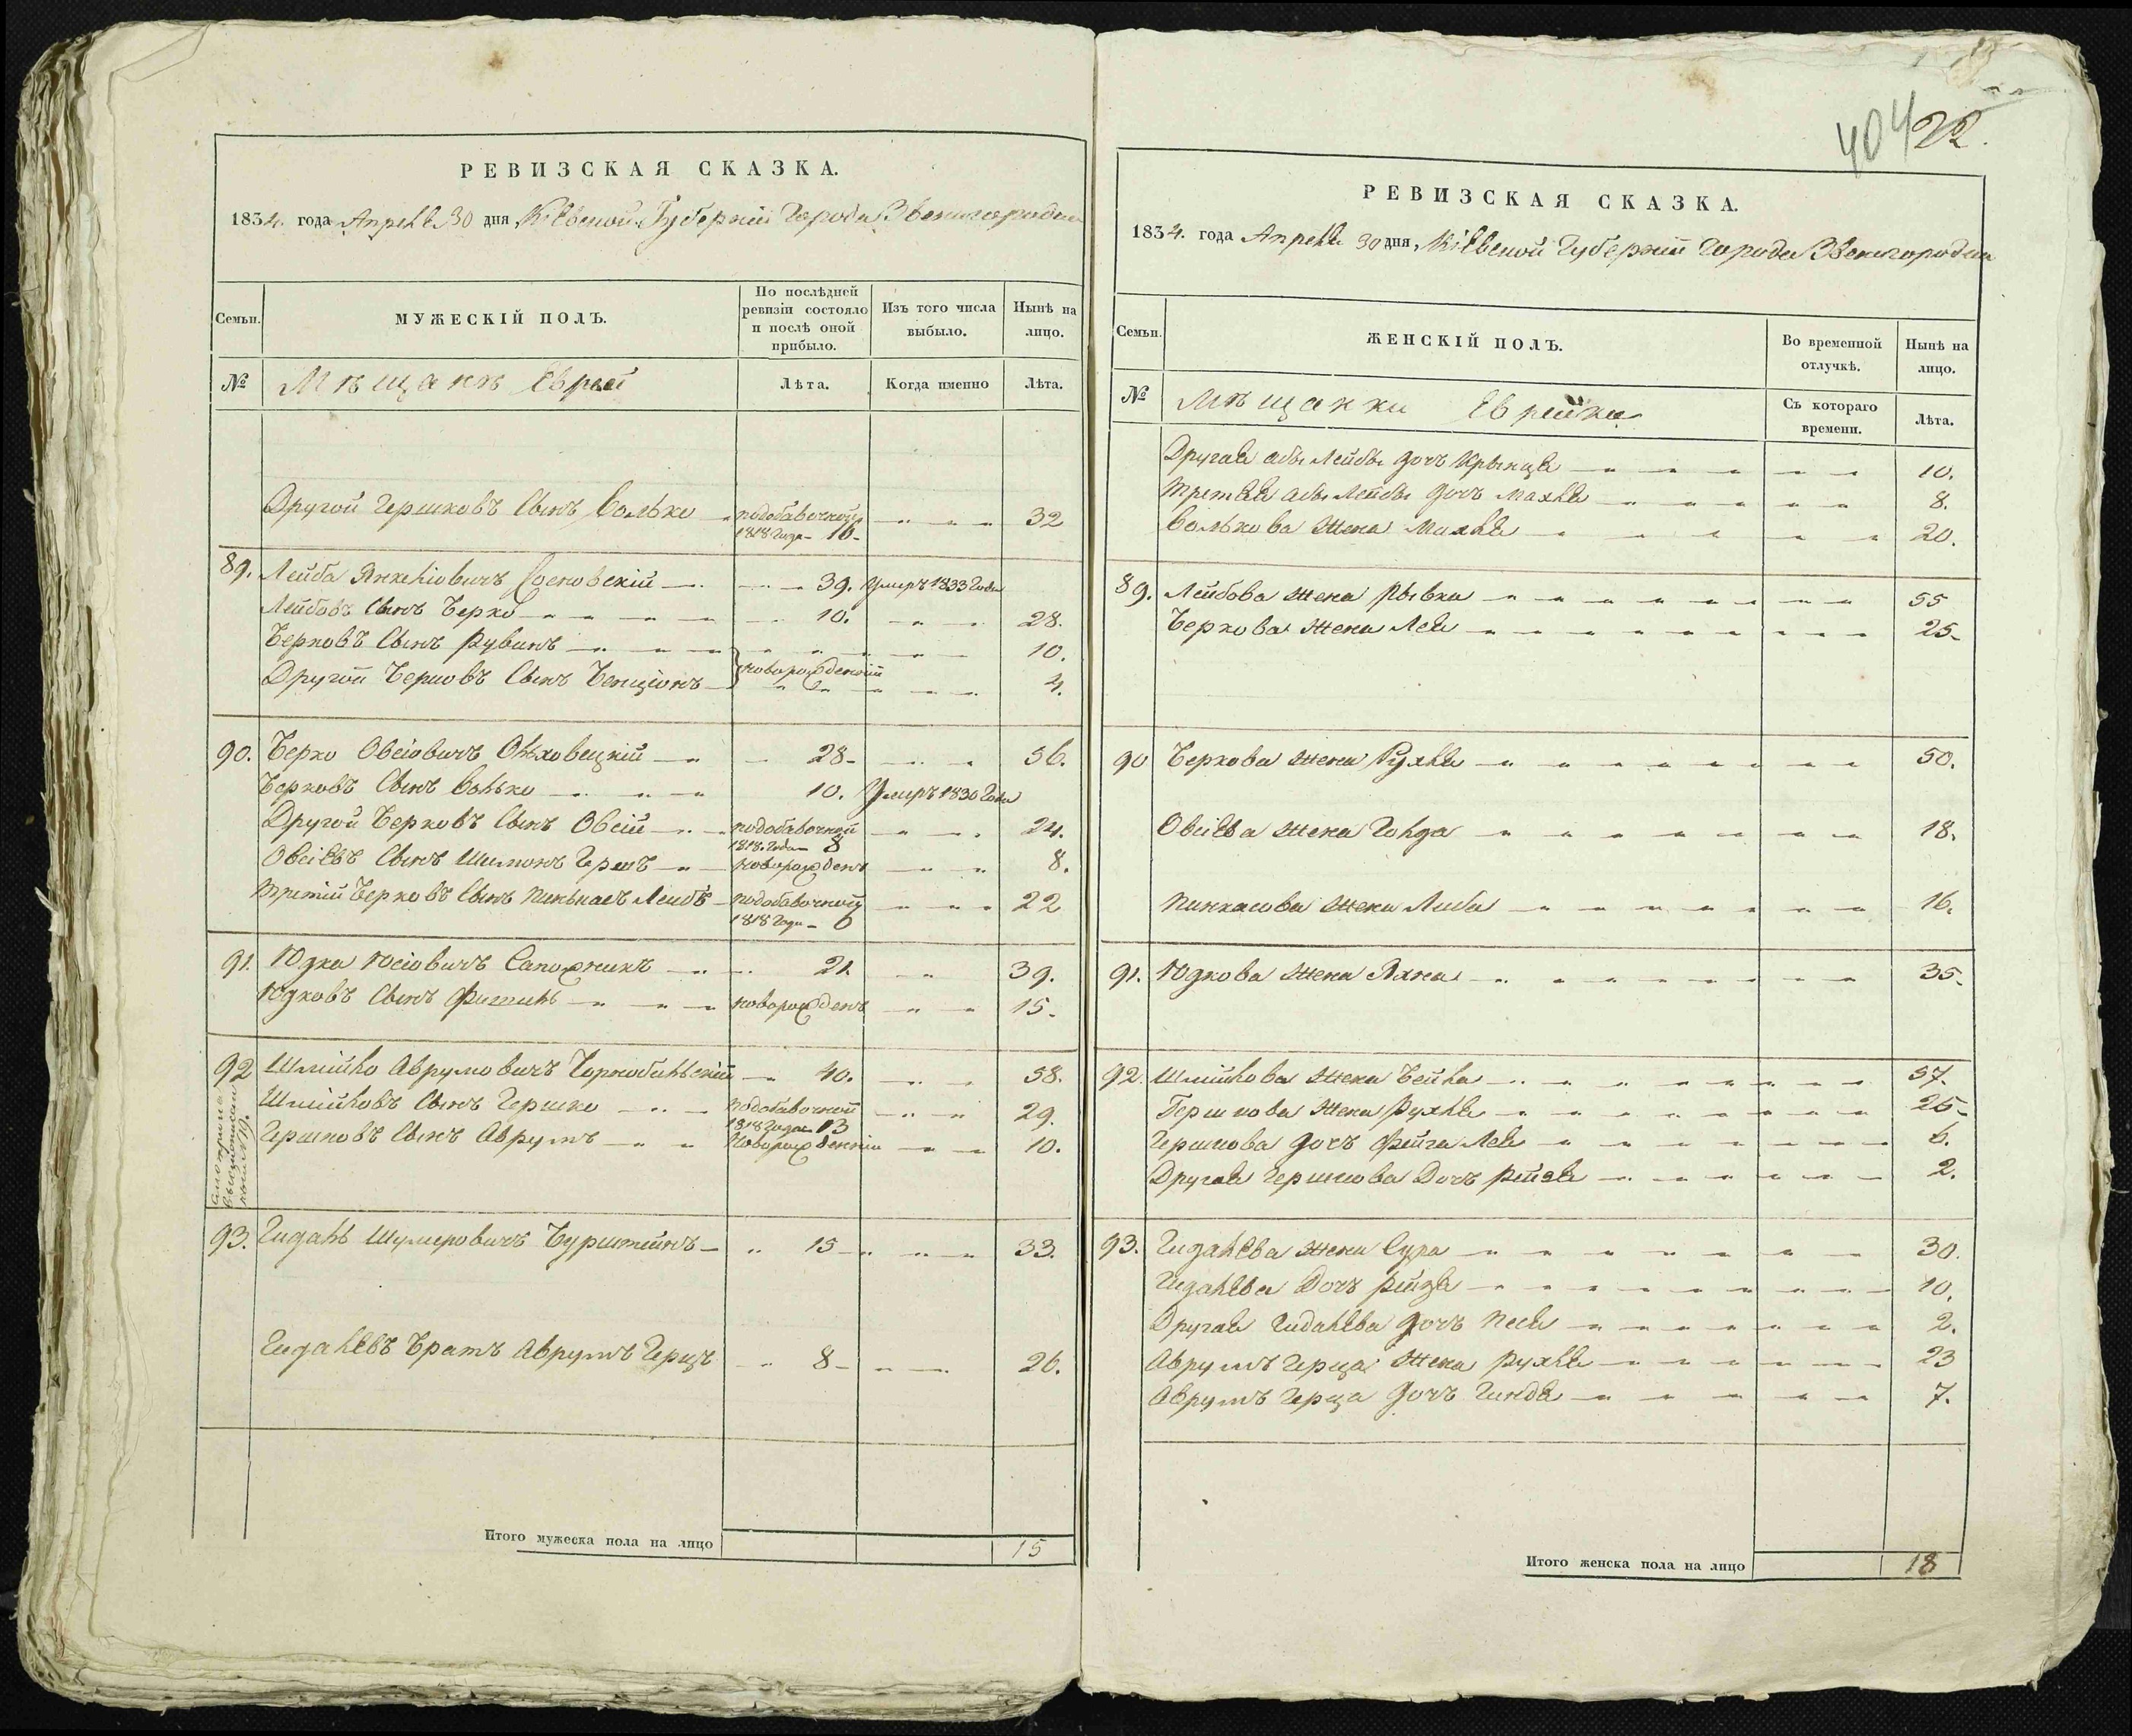 РЕВИЗСКАЯ СКАЗКА.
1834. года Апреля 30 дня, Кіевской Губерніи Города Звенигородки
Семьи.
МУЖЕСКІЙ ПОЛЪ.
По послѣдней ревизіи состояло и послѣ оной прибыло.
Изъ того числа выбыло.
Нынѣ на лицо.
№
Мѣщанъ Еврей
Лѣта.
Когда именно
Лѣта.
Другой Гершковъ Сынъ Волько подобавочной 1818 Года - 16 - 32
89. Лейба Янкеліовичъ Сосновскій 39. Умеръ 1833 Года
Лейбовъ Сынъ Берко 10. 28.
Берковъ Сынъ Рувинъ 10.
новорожденнiи
Другой Берковъ Сынъ Бенціонъ 4.
90. Берко Овсіовичъ Ольховецкій 28 - 56.
Берковъ Сынъ Волько 10. Умеръ 1830 Года
Другой Берковъ Сынъ Овсій подобавочной 1818. Года - 8 24.
Овсіевъ Сынъ Шимонъ Гершъ новорожденъ 8.
Третій Берковъ Сынъ Пинькасъ Лейбъ подобавочной 1818 Года - 6 22
91. Юдка Юсіовичъ Сапожникъ 21. 39.
Юдковъ Сынъ Фишель новорожденъ 15.
92 Шмійло Аврумовичъ Чорнобильскій 40. 58.
Шмійловъ Сынъ Гершко подобавочной 1818 Года - 13 29.
Гершковъ Сынъ Аврумъ Новорожденнiи 10.
93. Гидаль Шумеровичъ Бурштейнъ 15 33.
Гидалевъ Братъ Аврумъ Герцъ 8 - 26.
Итого мужеска пола на лицо 15
404
22.
РЕВИЗСКАЯ СКАЗКА.
1834. года Апреля 30 дня, Кіевской Губерніи Города Звенигородки
Семьи.
ЖЕНСКІЙ ПОЛЪ.
Во временной отлучкѣ.
Нынѣ на лицо.
№
Мѣщанки Еврейки
Съ котораго времени.
Лѣта.
Другая Абы Лейбы дочъ Крынця 10.
Третяя Абы Лейбы дочъ Махля 8.
Волькова Жена Махля 20.
89. Лейбова Жена Рывка 55
Беркова Жена Лея 25.
90 Беркова Жена Рухля 50.
Овсіева Жена Голда 18.
Пинкасова Жена Либа 16.
91. Юдкова Жена Яхна 35.
92. Шмійлова Жена Бейла 57.
Гершкова Жена Рухля 25.
Гершкова дочъ Фейга Лея 6.
Другая Гершкова Дочъ Рейзя 2.
93. Гидалева Жена Сура 30.
Гидалева Дочъ Рейзя 10.
Другая Гидалева дочъ Песя 2.
Аврумъ Герца Жена Рухля 23
Аврумъ Герца дочъ Гиндя 7.
Итого женска пола на лицо 18